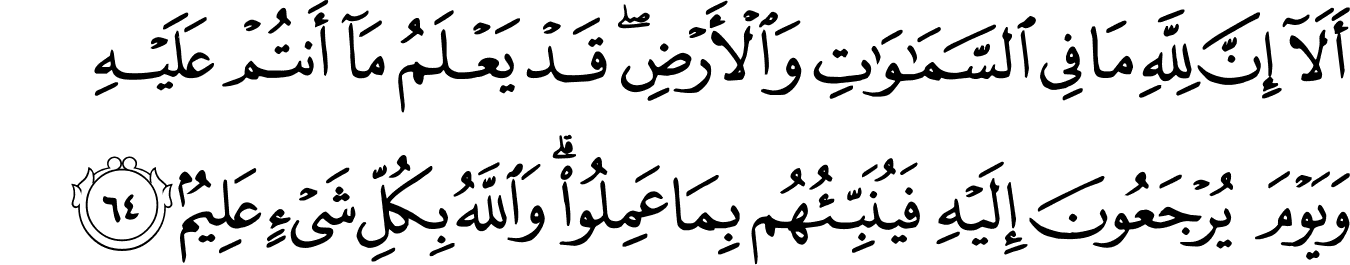 أَلَآ إِنَّ لِلَّهِ مَا فِى ٱلسَّمَـٰوَٰتِ وَٱلْأَرْضِ ۖ قَدْ يَعْلَمُ مَآ أَنتُمْ عَلَيْهِ
وَيَوْمَ يُرْجَعُونَ إِلَيْهِ فَيُنَبِّئُهُم بِمَا عَمِلُوا۟ ۗ وَٱللَّهُ بِكُلِّ شَىْءٍ عَلِيمٌۢ ٦٤